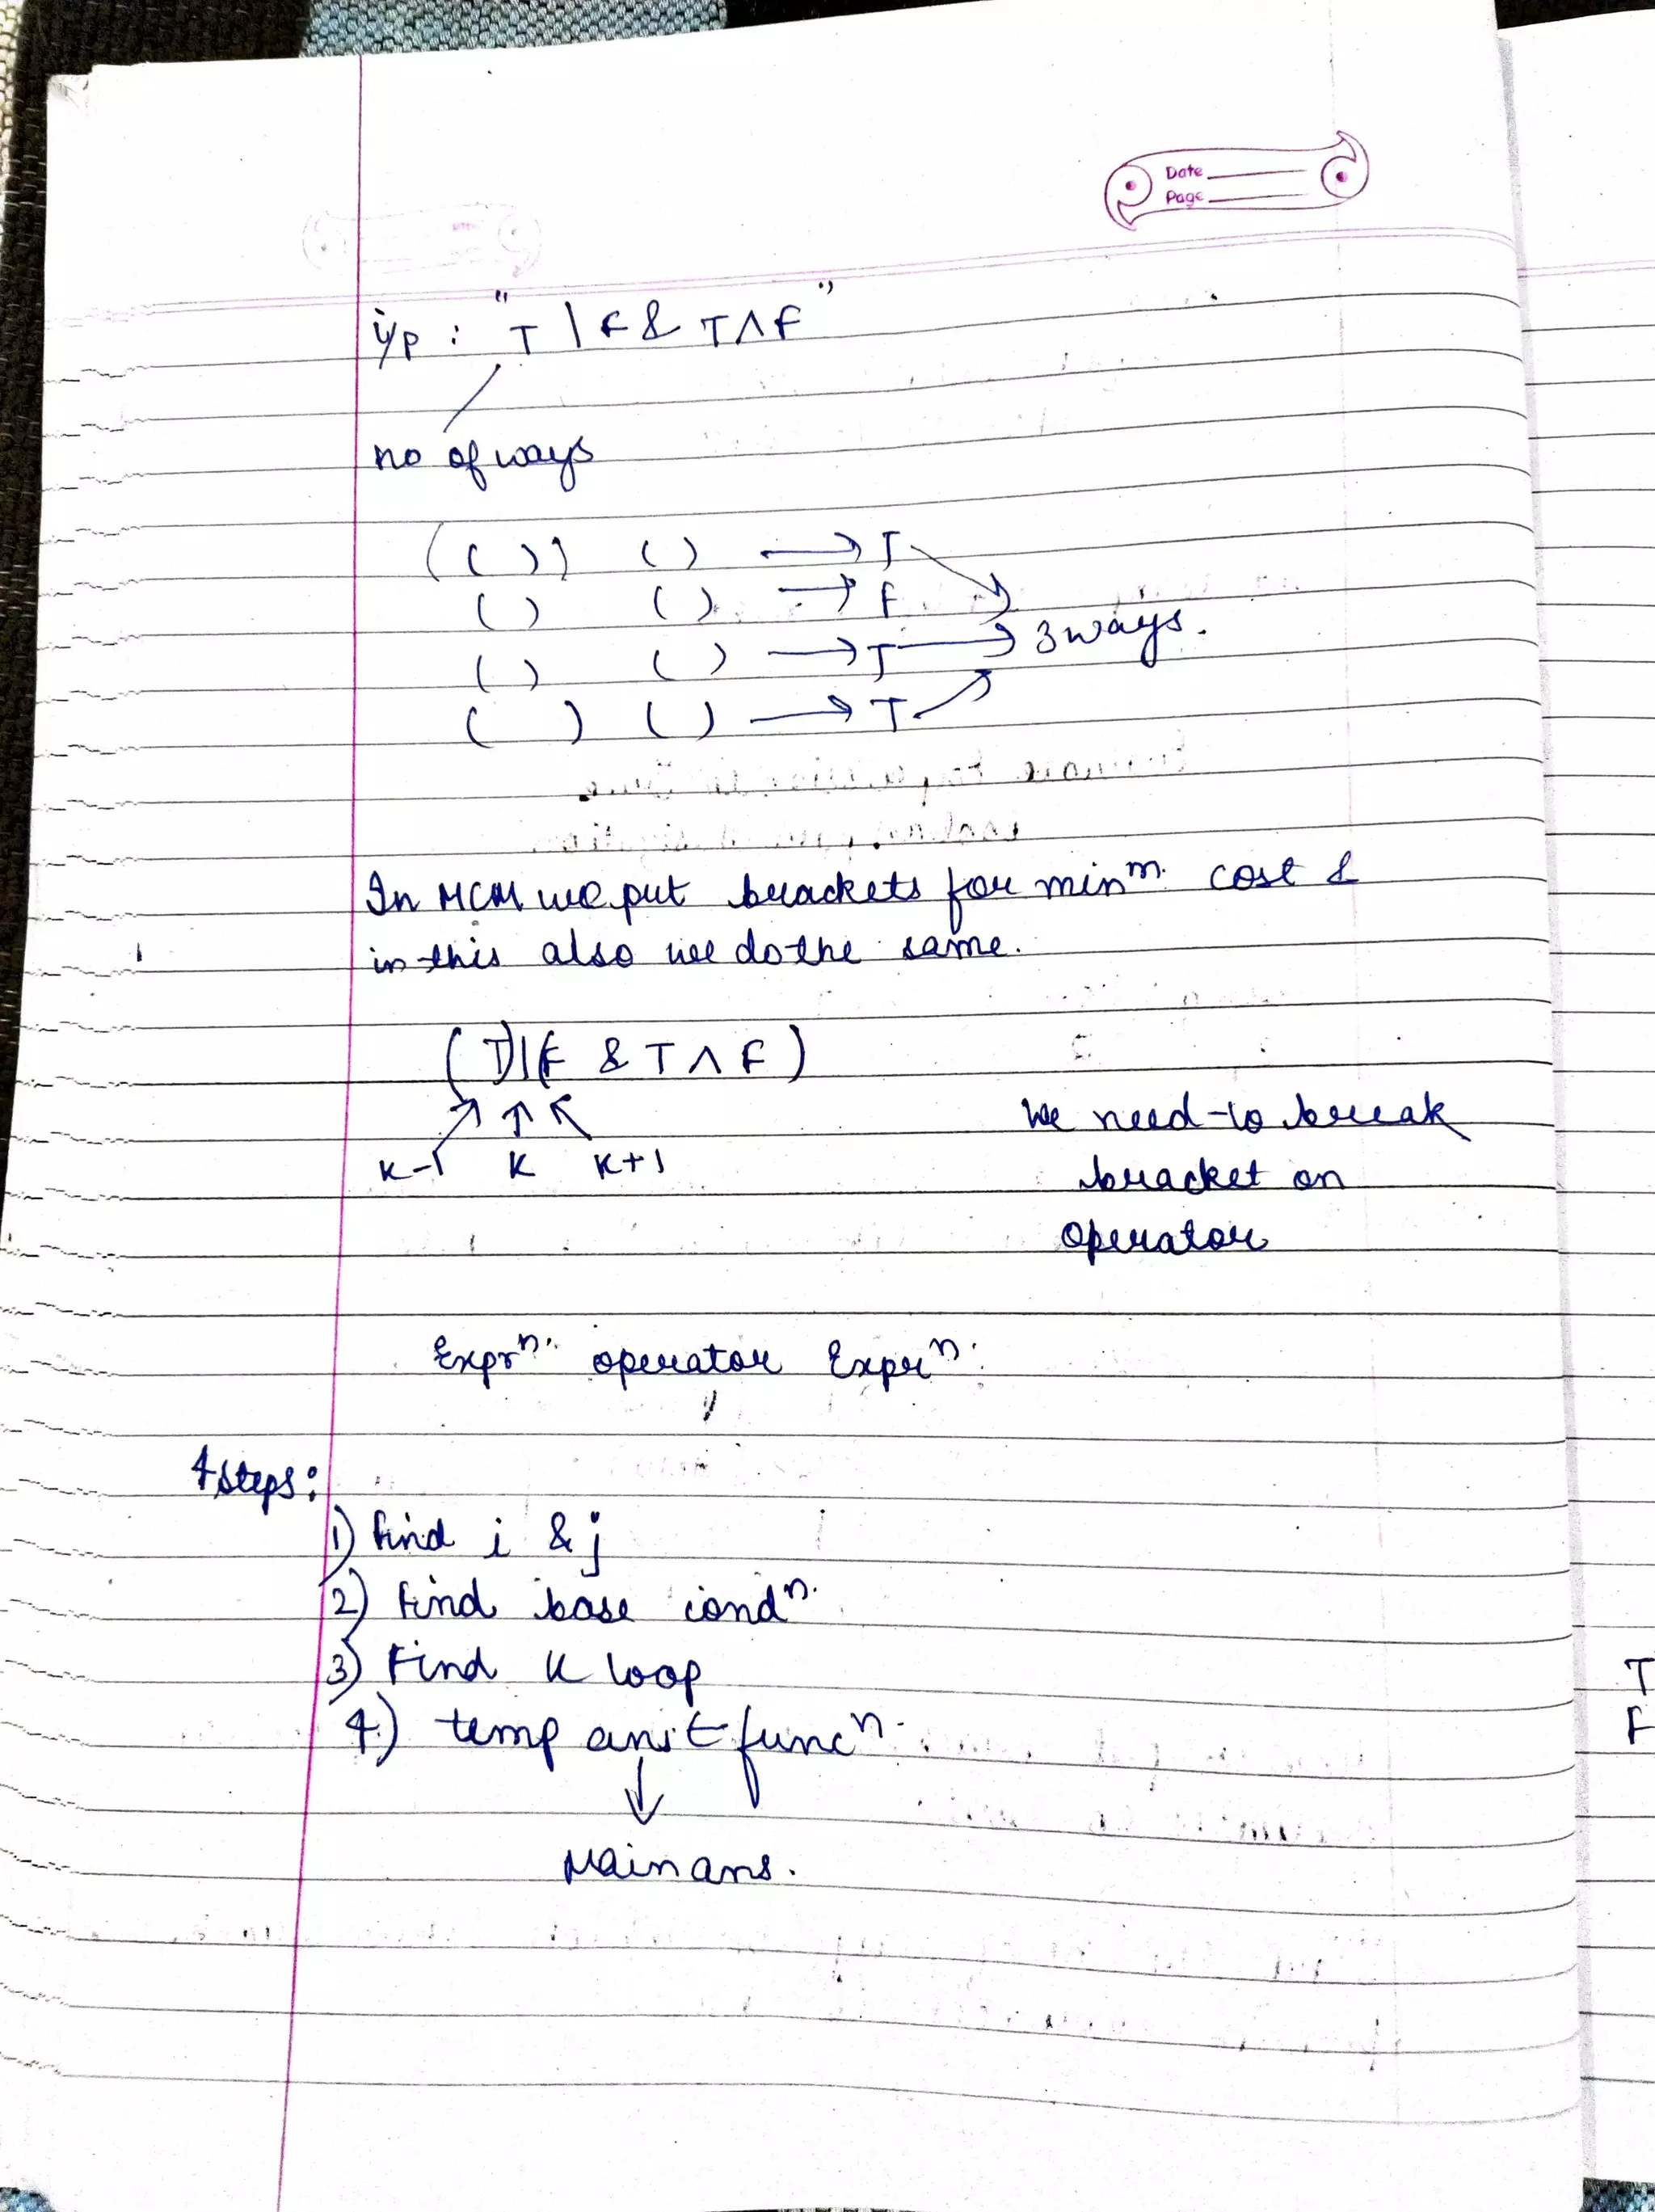 Date
Page
i/p : "T | F & T ∧ F"
no of ways
(( )) ( ) → T
( ) ( ) → F
( ) ( ) → T → 3 ways.
( ) ( ) → T
In MCM we put brackets for minᵐ. cost &
in this also we do the same.
(T)|(F & T ∧ F)
K-1 K K+1
We need to break
bracket on
operator
Exprⁿ. operator Exprⁿ.
4 steps:
1) Find i & j
2) Find base condⁿ.
3) Find K loop
4) temp ans funcⁿ.
↓
Main ans.
T
F